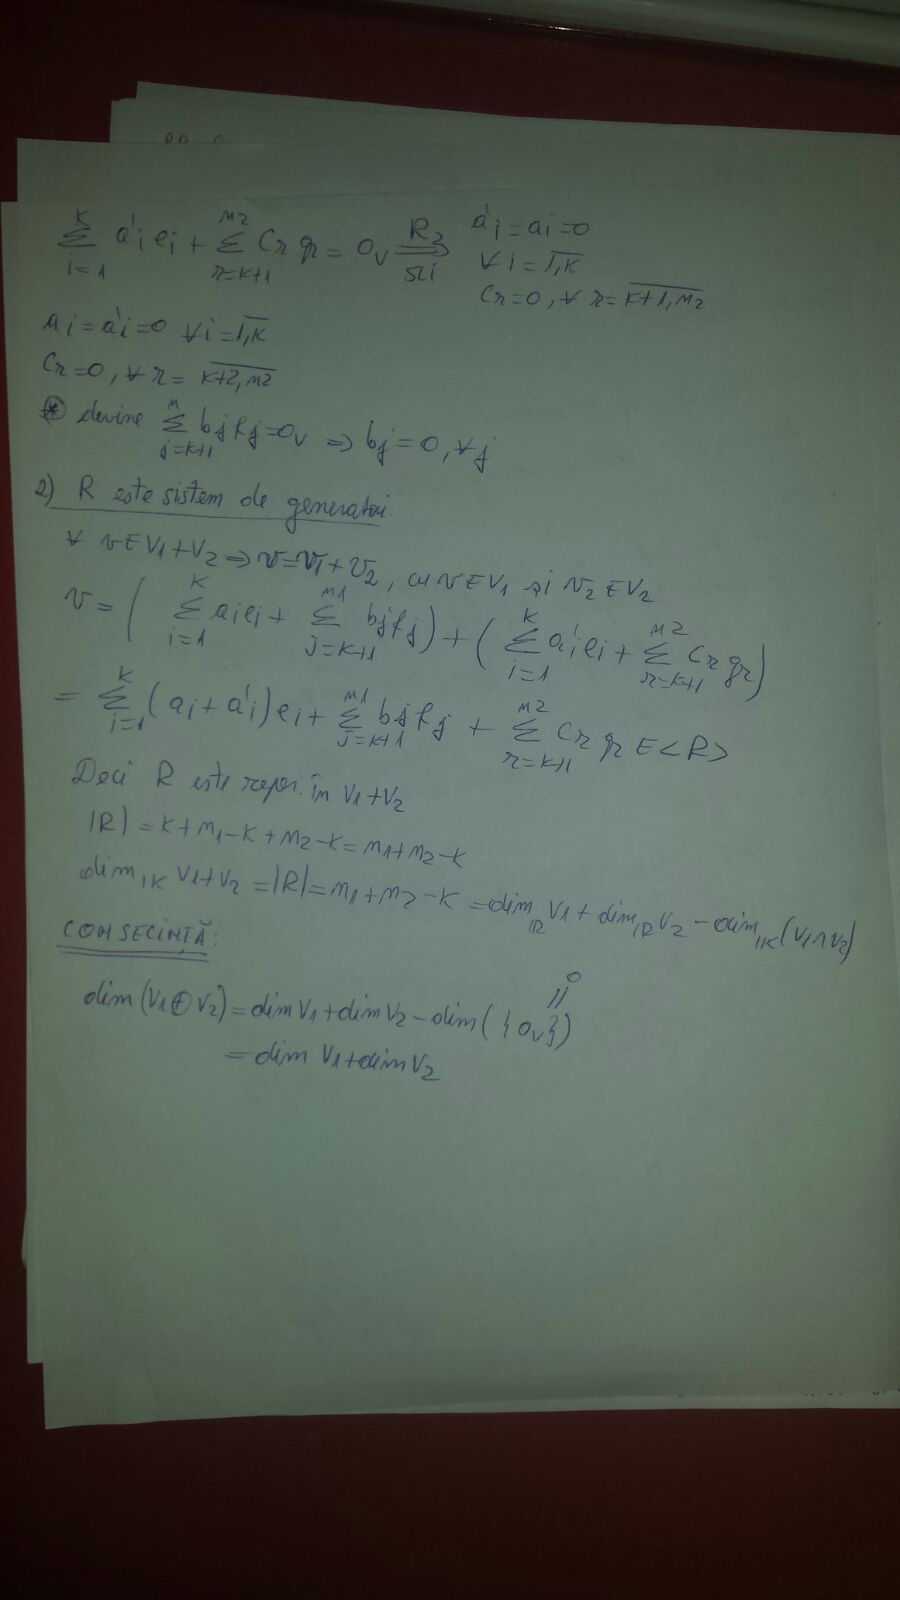 k∑i=1 a'i ei + n2∑r=k+1 Cr gr = 0v ⇒ R2 SLI a'i = ai = 0
∀ i = 1,k
Cr = 0, ∀ r = k+1, n2
ai = a'i = 0 ∀ i = 1,k
Cr = 0, ∀ r = k+2, n2
* devine n∑j=k+1 bj fj = 0v ⇒ bj = 0, ∀ j
2) R este sistem de generatori.
∀ v ∈ V1 + V2 ⇒ v = v1 + v2, cu v ∈ V1 și v2 ∈ V2
v = ( k∑i=1 ai ei + n1∑j=k+1 bj fj ) + ( k∑i=1 a'i ei + n2∑r=k+1 Cr gr )
= k∑i=1 (ai + a'i) ei + n1∑j=k+1 bj fj + n2∑r=k+1 Cr gr ∈ <R>
Deci R este reper în V1 + V2
|R| = k + n1 - k + n2 - k = n1 + n2 - k
dim IK V1 + V2 = |R| = n1 + n2 - k = dim IR V1 + dim IR V2 - dim IK (V1 ∩ V2)
CONSECINȚĂ:
dim (V1 ⊕ V2) = dim V1 + dim V2 - dim ( {0v} ) = 0
= dim V1 + dim V2